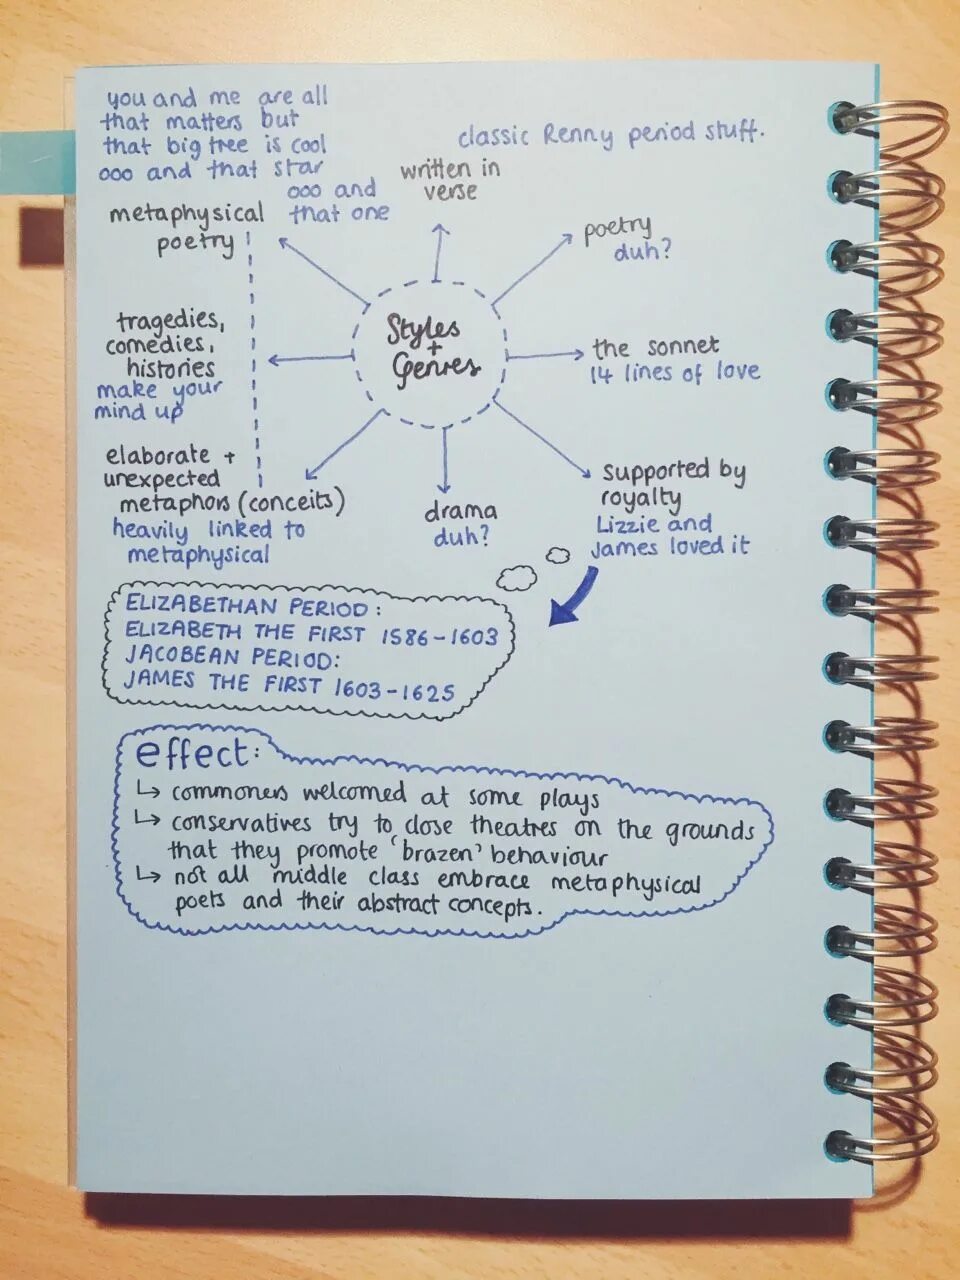 you and me are all
that matters but
that big tree is cool
ooo and that star
ooo and
that one
classic Renny period stuff.
written in
verse
metaphysical
poetry
poetry
duh?
Styles
+
Genres
tragedies,
comedies,
histories
make your
mind up
the sonnet
14 lines of love
elaborate +
unexpected
metaphors (conceits)
heavily linked to
metaphysical
drama
duh?
supported by
royalty
Lizzie and
James loved it
ELIZABETHAN PERIOD:
ELIZABETH THE FIRST 1586-1603
JACOBEAN PERIOD:
JAMES THE FIRST 1603-1625
effect:
↳ commoners welcomed at some plays
↳ conservatives try to close theatres on the grounds
that they promote 'brazen' behaviour
↳ not all middle class embrace metaphysical
poets and their abstract concepts.